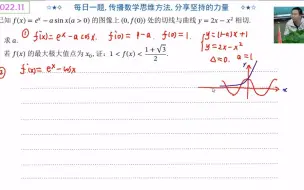 022.11
每日一题, 传播数学思维方法, 分享坚持的力量
已知 f(x) = eˣ − a sin x(a > 0) 的图像上 (0, f(0)) 处的切线与曲线 y = 2x − x² 相切.
求 a. ① f'(x) = eˣ − a cos x. f'(0) = 1 − a. f(0) = 1. { y = (1−a)x + 1
y = 2x − x²
Δ = 0. a = 1.
若 f(x) 的最大极大值点为 x₀, 证: 1 < f(x₀) < (1 + √3)/2
② f'(x) = eˣ − cos x
Y
x